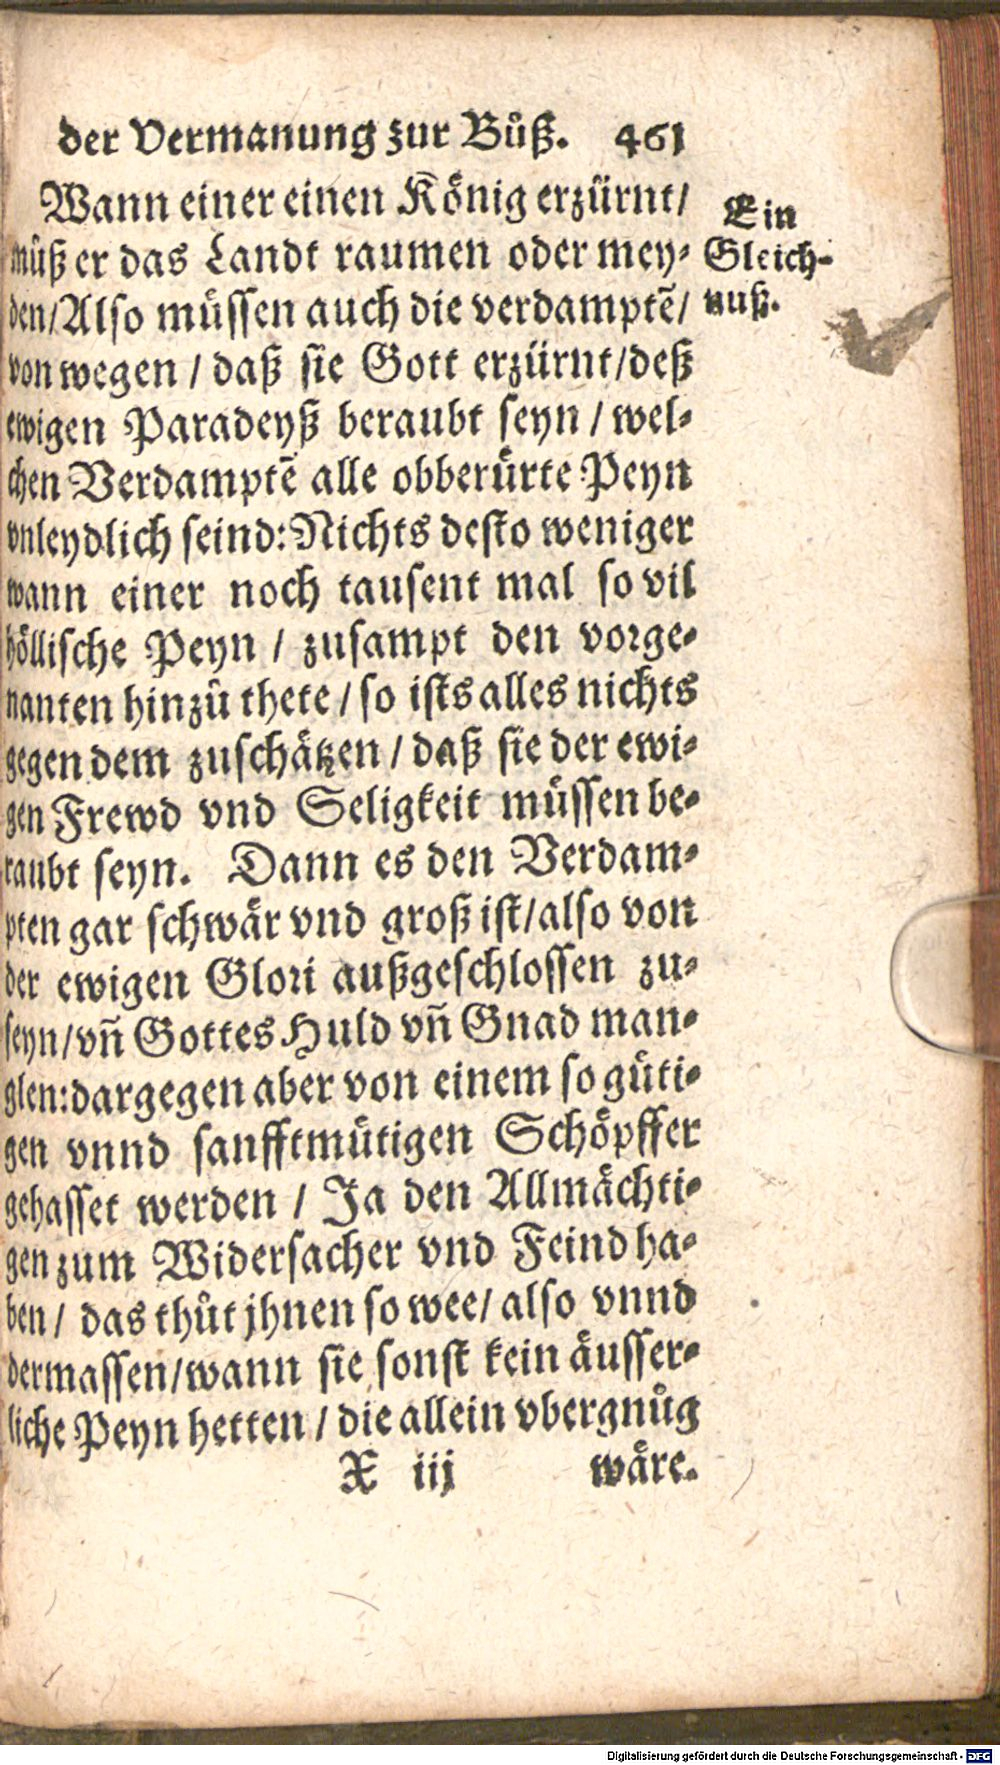 der Vermanung zur Bůß. 461
Wann einer einen König erzürnt/
můß er das Landt raumen oder mey-
den/Also müssen auch die verdamptẽ/
von wegen / daß sie Gott erzürnt/deß
ewigen Paradeyß beraubt seyn / wel-
chen Verdamptẽ alle obberürte Peyn
vnleydlich seind: Nichts desto weniger
wann einer noch tausent mal so vil
höllische Peyn / zusampt den vorge-
nanten hinzů thete / so ists alles nichts
gegen dem zuschätzen / daß sie der ewi-
gen Frewd vnd Seligkeit müssen be-
raubt seyn. Dann es den Verdam-
pten gar schwär vnd groß ist/also von
der ewigen Glori außgeschlossen zu-
seyn/vñ Gottes Huld vñ Gnad man-
glen: dargegen aber von einem so güti-
gen vnnd sanfftmütigen Schöpffer
gehasset werden / Ja den Allmächti-
gen zum Widersacher vnd Feind ha-
ben / das thůt jhnen so wee/ also vnnd
dermassen/wann sie sonst kein äusser-
liche Peyn hetten / die allein vbergnůg
X iij wäre.
Ein
Gleich-
nuß.
Digitalisierung gefördert durch die Deutsche Forschungsgemeinschaft - DFG